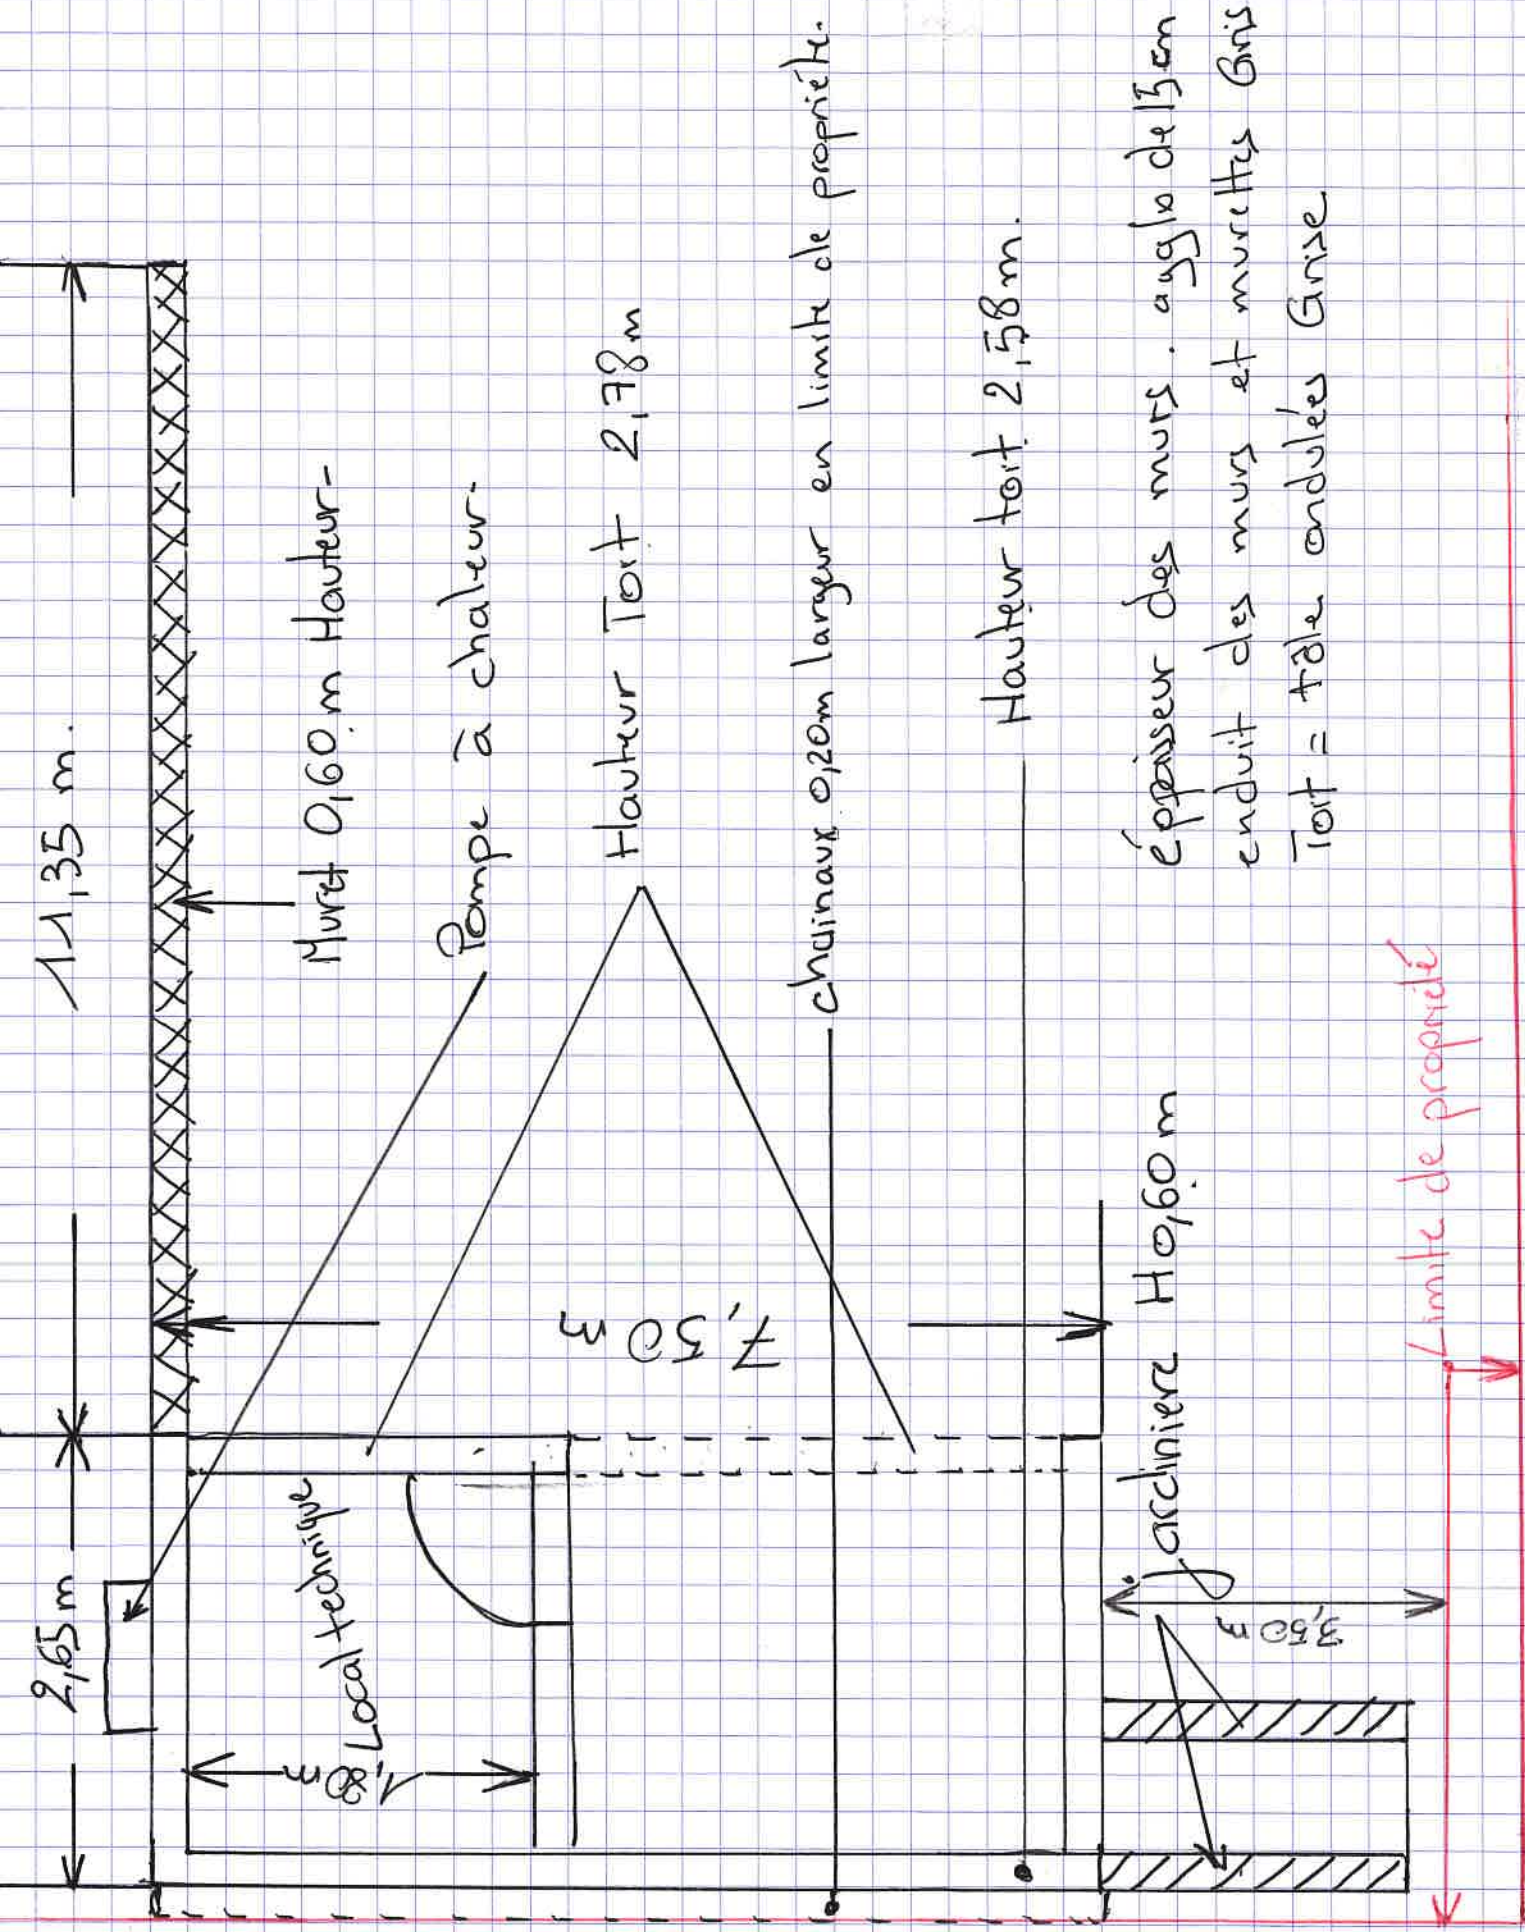 11,35 m.
2,65 m
Muret 0,60 m Hauteur-
Pompe à chaleur-
Hauteur Toit 2,78m
chainaux 0,20m largeur en limite de propriété.
Hauteur toit 2,58m.
épaisseur des murs. agglo de 15 cm
enduit des murs et murettes Gris
Toit = tôle ondulées Grise
Local technique
1,80 m
7,50 m
jardiniere H 0,60 m
3,50 m
Limite de propriété